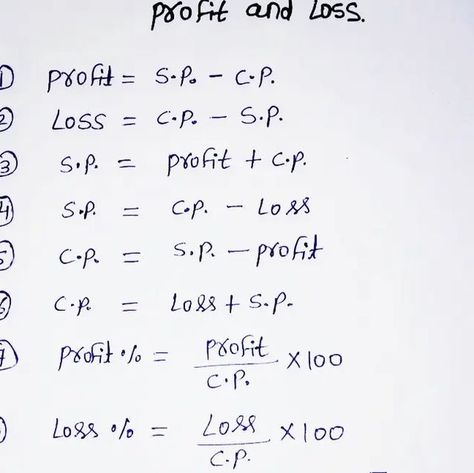 Profit and Loss.
① Profit = S.P. - C.P.
② Loss = C.P. - S.P.
③ S.P. = Profit + C.P.
④ S.P. = C.P. - Loss
⑤ C.P. = S.P. - Profit
⑥ C.P. = Loss + S.P.
⑦ Profit % = Profit / C.P. × 100
Loss % = Loss / C.P. × 100